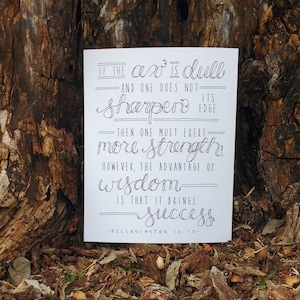 IF THE ax IS dull
AND ONE DOES NOT
sharpen ITS EDGE
THEN ONE MUST EXERT
more strength,
HOWEVER, THE ADVANTAGE OF
wisdom
IS THAT IT BRINGS
success
-ECCLESIASTES 10:10-